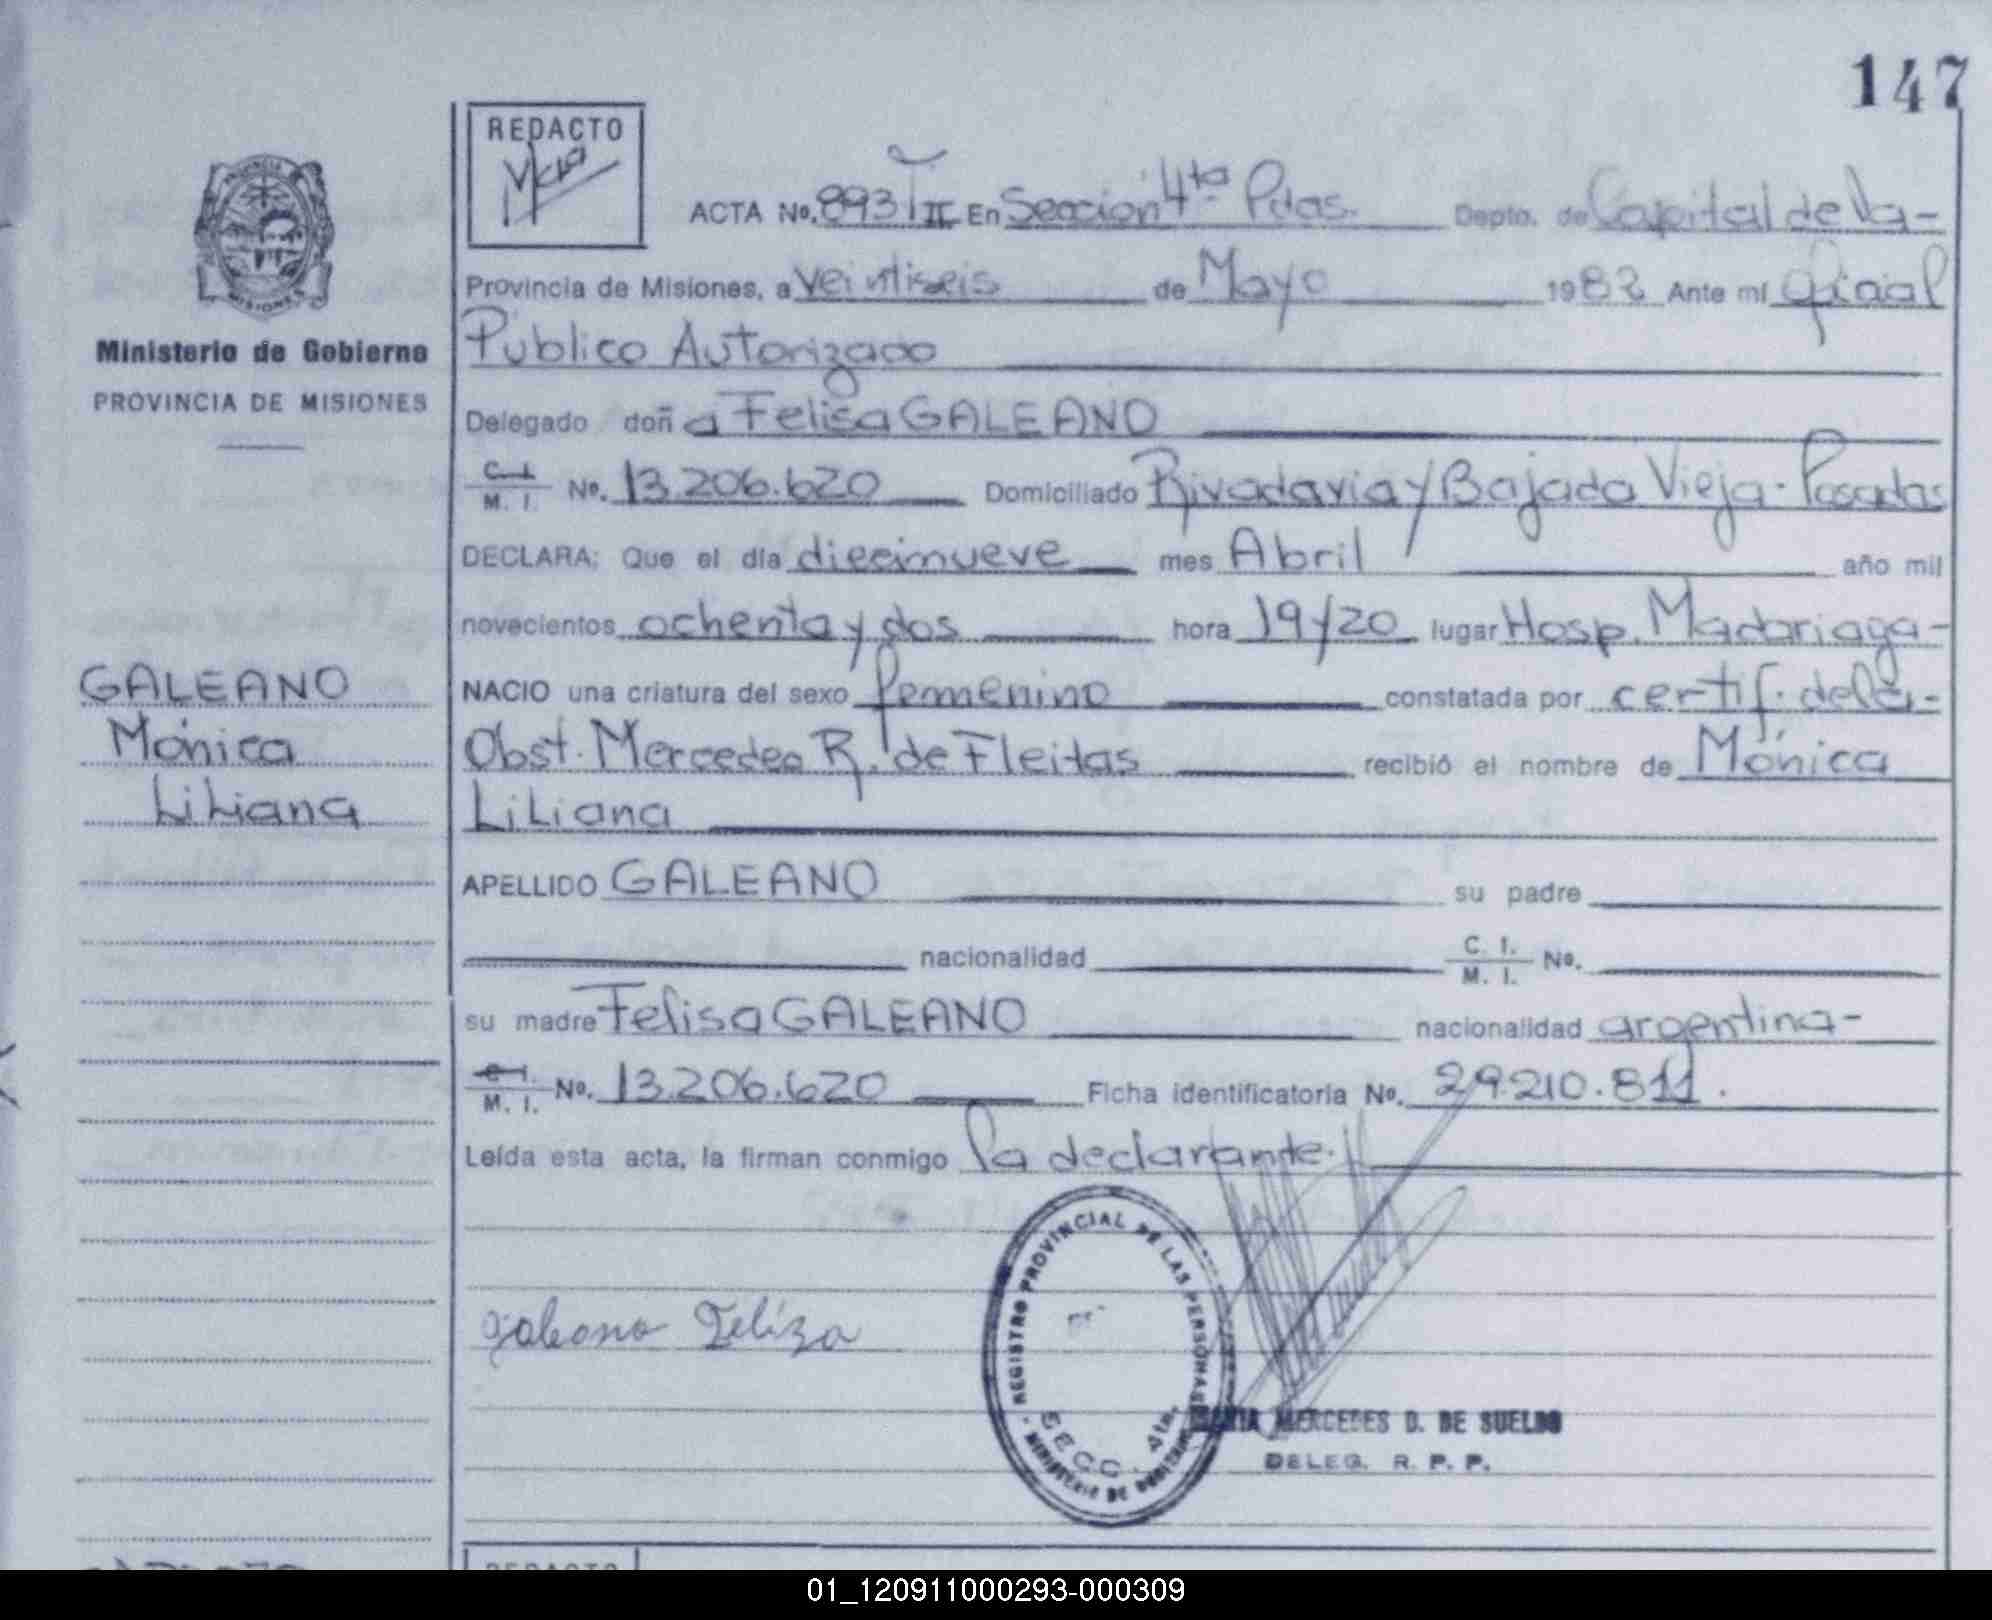 147
REDACTO
ACTA No. 893 T II En Sección 4ta Pdas. Depto. de Capital de la-
Provincia de Misiones, a veintiseis de Mayo 1982 Ante mí Oficial
Público Autorizado
Delegado doña Felisa GALEANO
C. I. M. I. No. 13.206.620 Domiciliado Rivadavia y Bajada Vieja - Posadas
DECLARA: Que el día diecinueve mes Abril año mil
novecientos ochenta y dos hora 19y20 lugar Hosp. Madariaga-
NACIO una criatura del sexo femenino constatada por certif. de la-
Obst. Mercedes R. de Fleitas recibió el nombre de Mónica
Liliana
APELLIDO GALEANO su padre
nacionalidad C. I. M. I. No.
su madre Felisa GALEANO nacionalidad argentina-
C. I. M. I. No. 13.206.620 Ficha identificatoria No. 29.210.811.
Leída esta acta, la firman conmigo la declarante.
Galeano Feliza
REGISTRO PROVINCIAL DE LAS PERSONAS
SECC. 4ta.
MINISTERIO DE GOBIERNO
MARIA MERCEDES D. DE SUELDO
DELEG. R. P. P.
PROVINCIA
MISIONES
Ministerio de Gobierno
PROVINCIA DE MISIONES
GALEANO
Mónica
Liliana
REDACTO
01_120911000293-000309